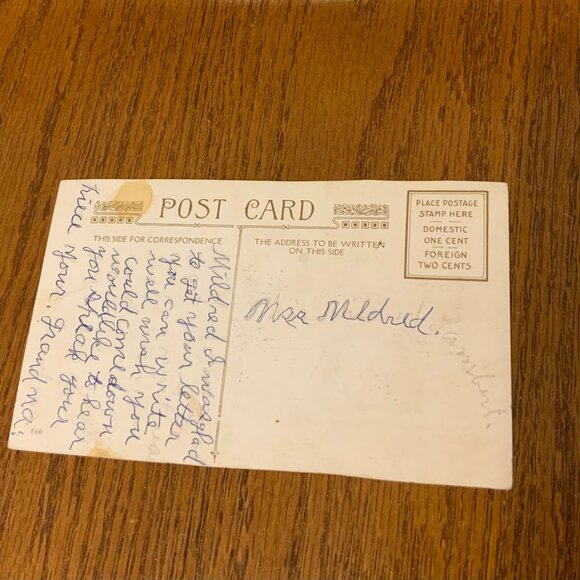 POST CARD
THIS SIDE FOR CORRESPONDENCE
THE ADDRESS TO BE WRITTEN
ON THIS SIDE
PLACE POSTAGE
STAMP HERE
DOMESTIC
ONE CENT
FOREIGN
TWO CENTS
Mildred I was glad
to get your letter
you can write
well wish you
could come down
would like to hear
you speak your
piece your Grandma.
Mildred.